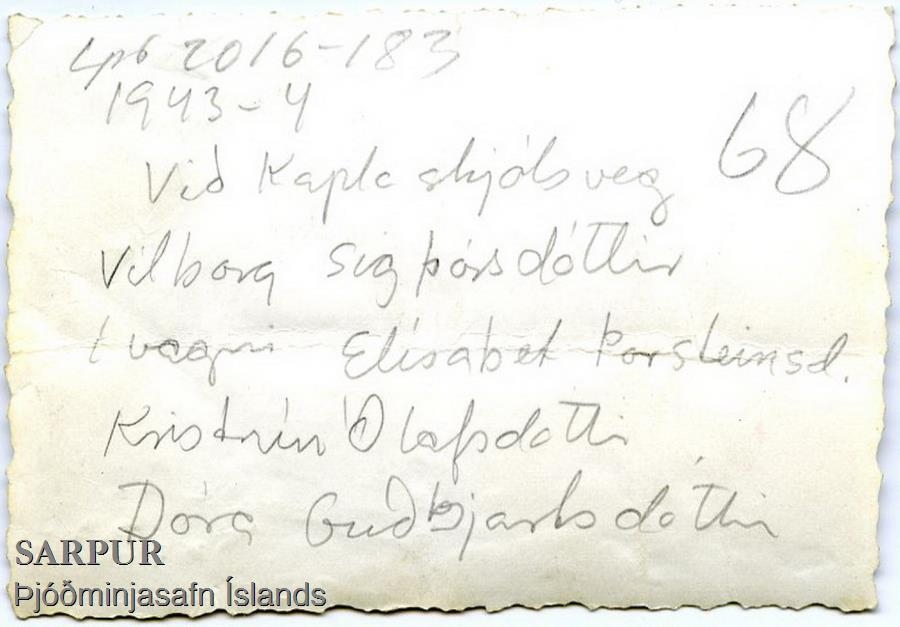 Lpr 2016-183
1943-4
68
Við Kaplaskjólsveg
Vilborg Sigþórsdóttir
í vagni Elísabet Þorsteinsd.
Kristrún Ólafsdóttir
Dóra Guðbjartsdóttir
SARPUR
Þjóðminjasafn Íslands